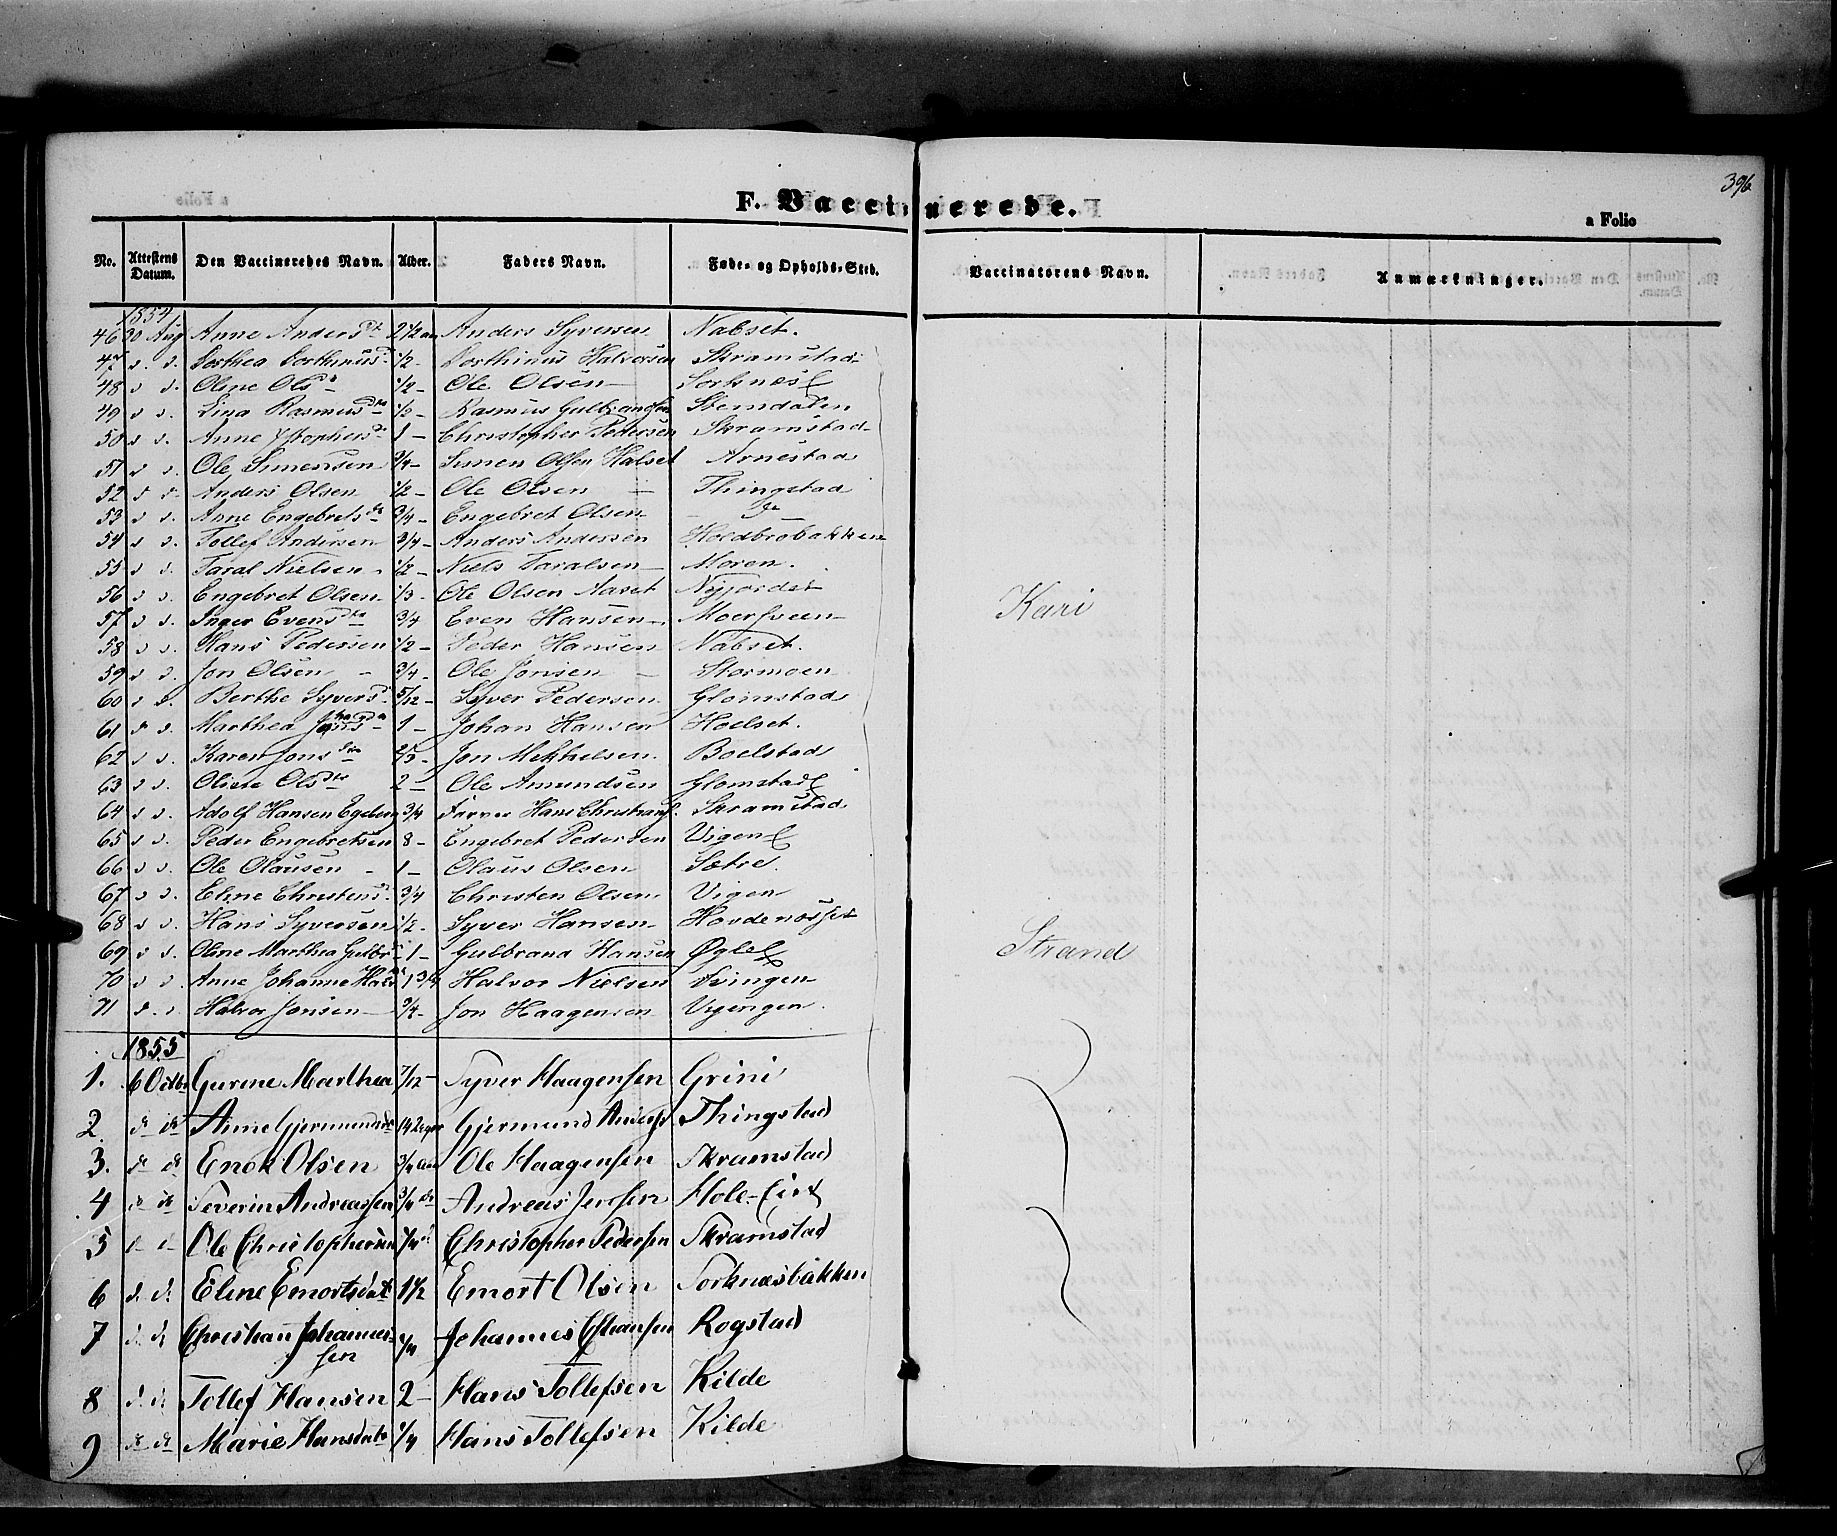 396
F. Vaccinerede.
a Folio
No. Attestens Datum. Den Vaccineredes Navn. Alder. Faders Navn. Føde- og Opholds-Sted. Vaccinatorens Navn. Anmærkninger.
1854
46 30 Aug Anne Andersdt 2 1/2 aar Anders Syversen Nabset.
47 d. d. Dorthea Dorthinusd. 1/2 - Dorthinus Halvorsen Skramstad
48 d d. Oline Olsd 1/2 - Ole Olsen Sorknæs
49 d d. Lina Rasmusdtr 1/2 - Rasmus Gulbrandsen Stemdalen
50 d d. Anne Xstophersd 1 - Christopher Pedersen Skramstad
51 d d. Ole Simensen 3/4 - Simen Olsen Halset Arnestad
52 d d. Anders Olsen 1/2 - Ole Olsen Thingstad
53 d d. Anne Engebretsdr 3/4 - Engebret Olsen - do -
54 d d. Tollef Andersen 3/4 - Anders Andersen Holdbrobakken
55 d d. Taral Nielsen 1/2 - Niels Taralsen Moren.
56 d d. Engebret Olsen 1/3 - Ole Olsen Aaset Nyjordet
57 d d. Inger Evensdtr 3/4 Even Hansen Moersveen
58 d d. Hans Pedersen 1/2 - Peder Hansen Nabset.
59 d d. Jon Olsen 3/4 - Ole Jonsen Stormoen
60 d d. Berthe Syversd. 5/12 - Syver Pedersen Glomstad
61 d d. Marthea Johansd 1 - Johan Hansen Hoelset.
62 d d. Karen Jonsdtr 2/3 - Jon Mikkelsen. Boelstad
63 d d. Olsdtr 2 - Ole Amundsen Glomstad
64 d d. Adolf Hansen Egeberg 3/4 Farver Hans Christians. Skramstad
65 d d. Peder Engebretsen 8 - Engebret Pedersen Vigen
66 d d. Ole Olausen - 1 - Olaus Olsen Sætre.
67 d d. Eline Christensd. 3/4 Christen Olsen Vigen
68 d d. Hans Syversen 1/2 - Syver Hansen Hovdenæsset
69 d d. Oline Marthea Gulbrd 1 - Gulbrand Hansen Øgle
70 d d. Anne Johanne Halvd 1 3/4 Halvor Nielsen
71 d. d Halvor Jonsen 3/4 - Jon Haagensen
Kari
Strand
1855
1. 6 Octbr Gurine Marthea 7/12 - Syver Haagensen Grini
2. do do Anne Gjermundsdtr 14 Uger Gjermund Anders Thingstad
3. do do Olsen 3/4 aar Ole Haagensen Skramstad
4 do do Severin Andreassen 3/4 do Andreas Jensen Hole-
5 d d Ole Christophersen 1/4 d Christopher Pedersen Skramstad
6 d. d. Eline Emortsdatr 1 1/2 Emort Olsen Sorknæsbakken
7 d. d. Christian Johannessen 1/4 Johannes Rogstad
8 d. d. Tollef Hansen 2 - Hans Tollefsen Kilde
9 do do Marie Hansdatr 1/4 Hans Tollefsen Kilde